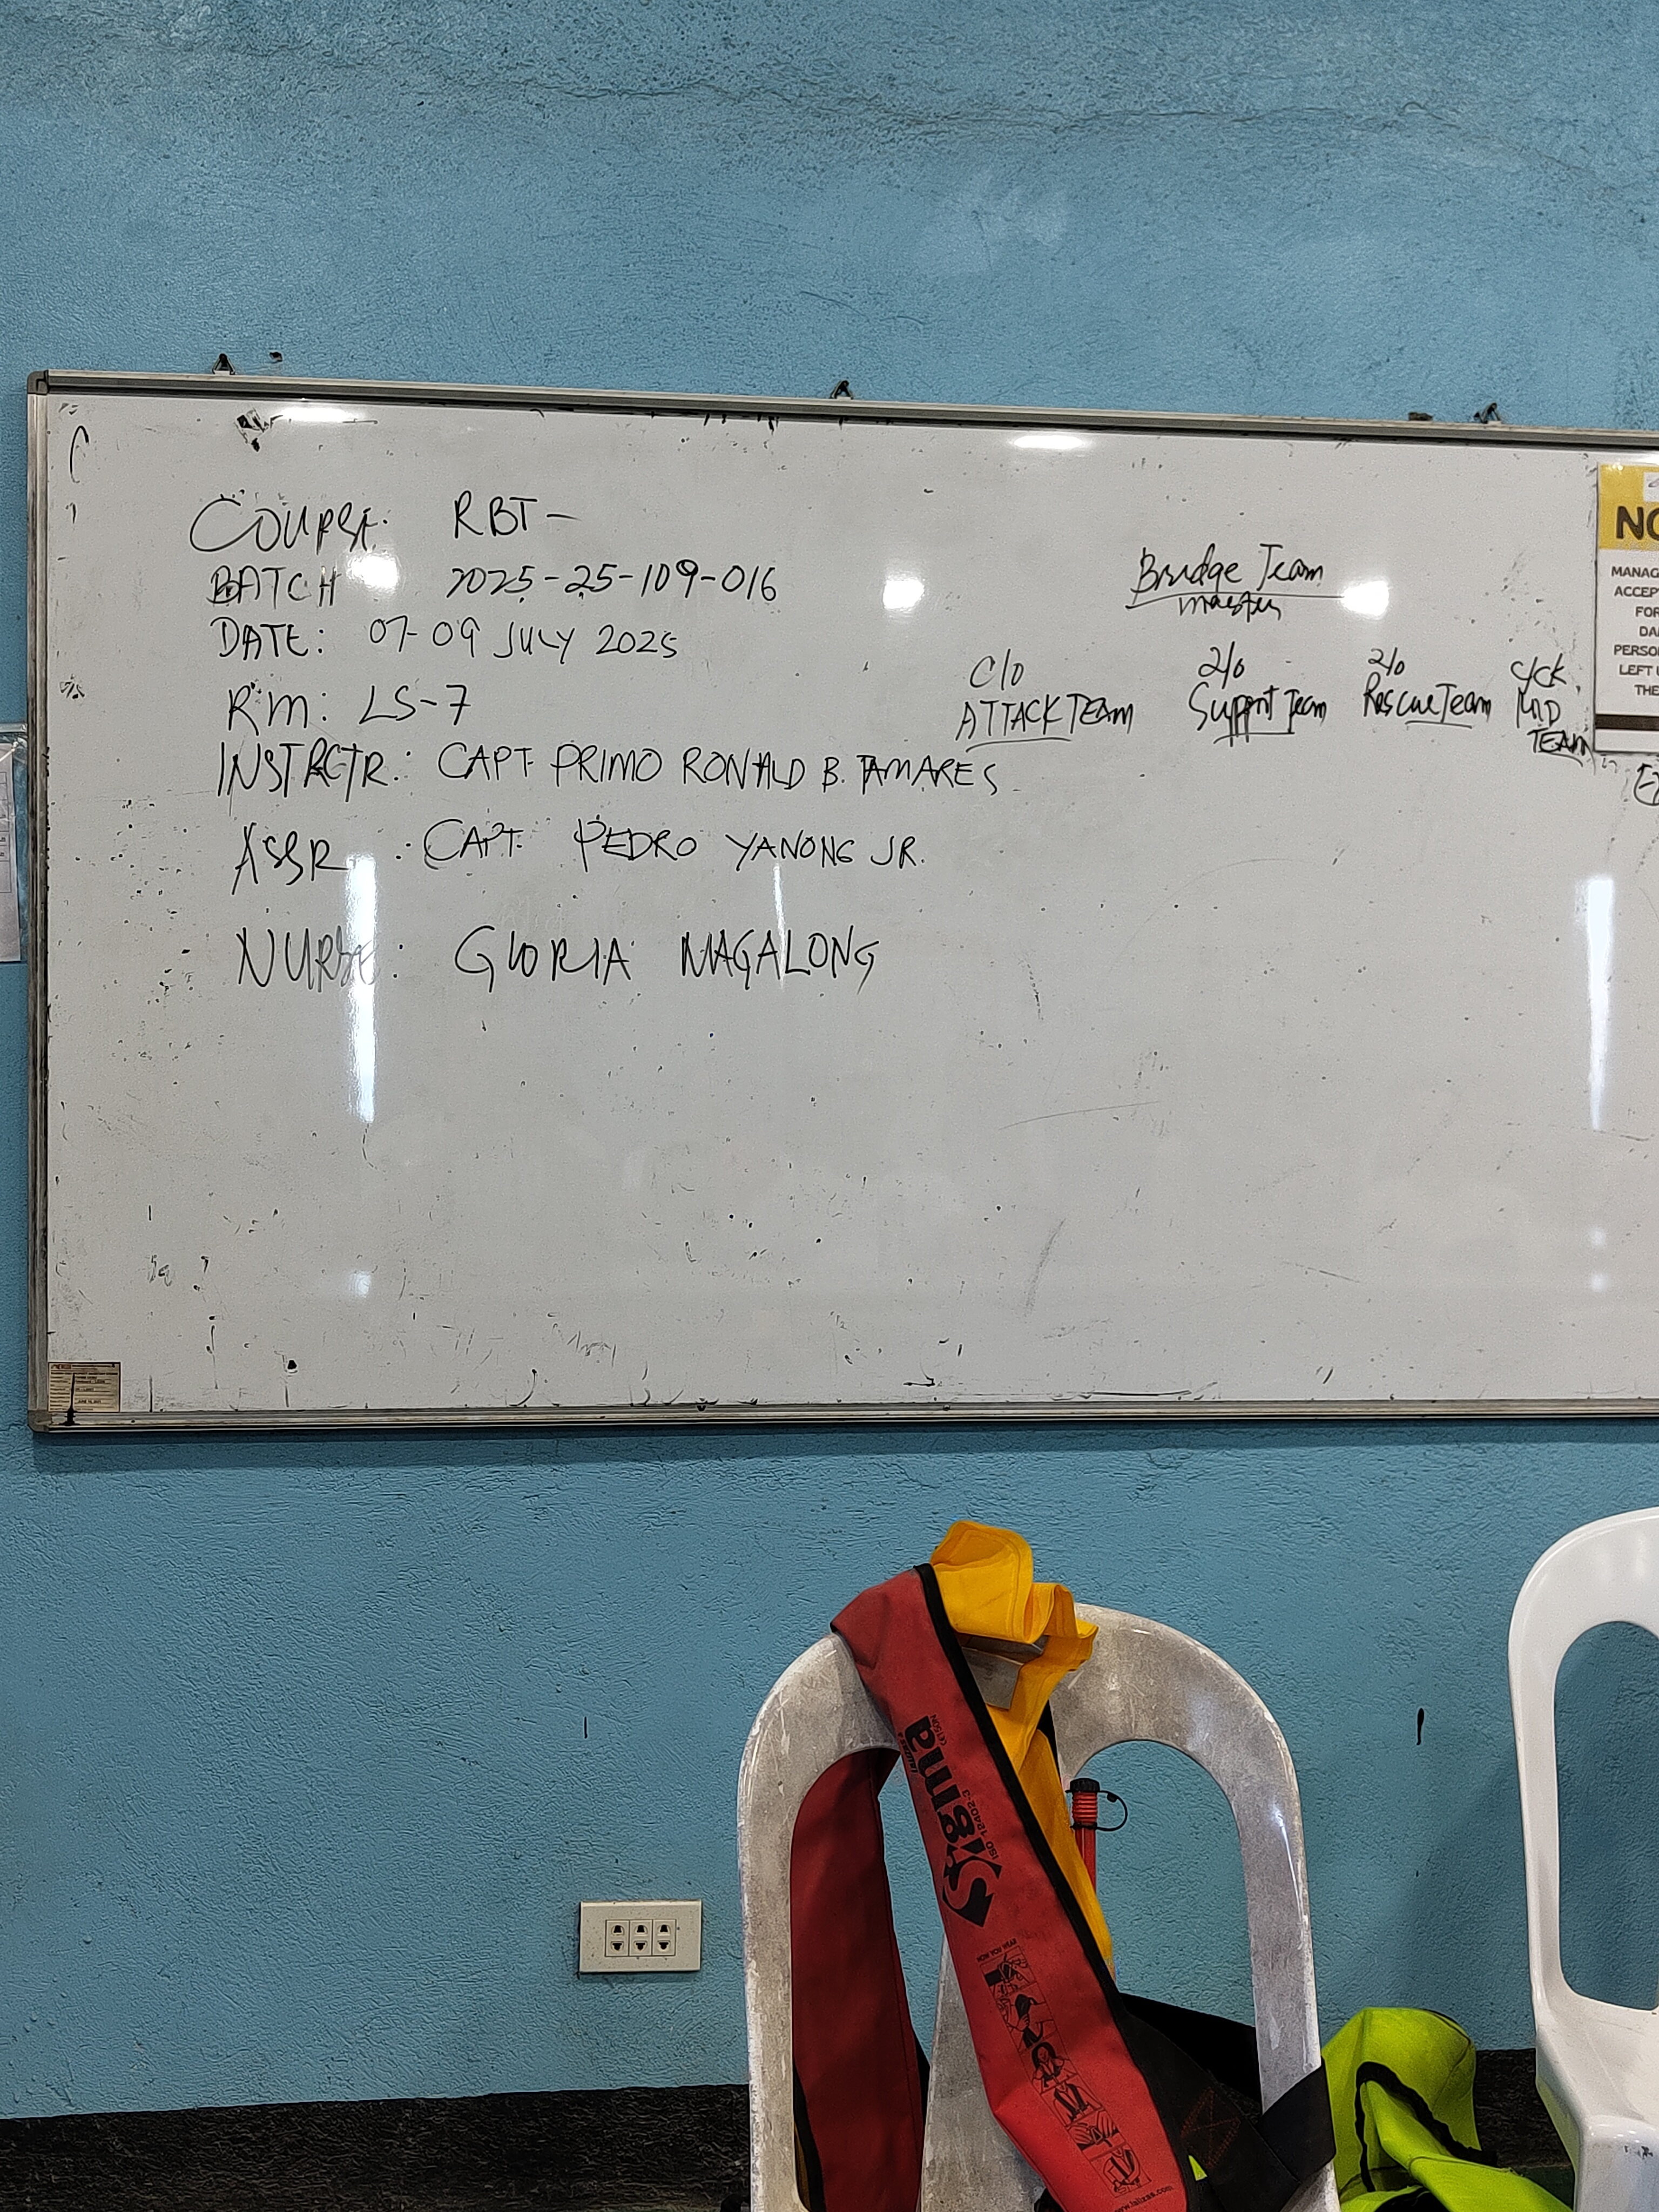 COURSE: RBT-
BATCH 2025-25-109-016
DATE: 07-09 JULY 2025
RM: LS-7
INSTRCTR: CAPT. PRIMO RONALD B. TAMARES
ASSR : CAPT. PEDRO YANONG JR.
NURSE: GLORIA MAGALONG
Bridge Team
master
C/O 2/O 2/O
ATTACK TEAM Support Team Rescue Team
TEAM
NO
MANAG
ACCEP
FOR
DA
PERSO
LEFT U
THE
Sigma
ISO 12402-3
HOW YOU WEAR
www.lalizas.com